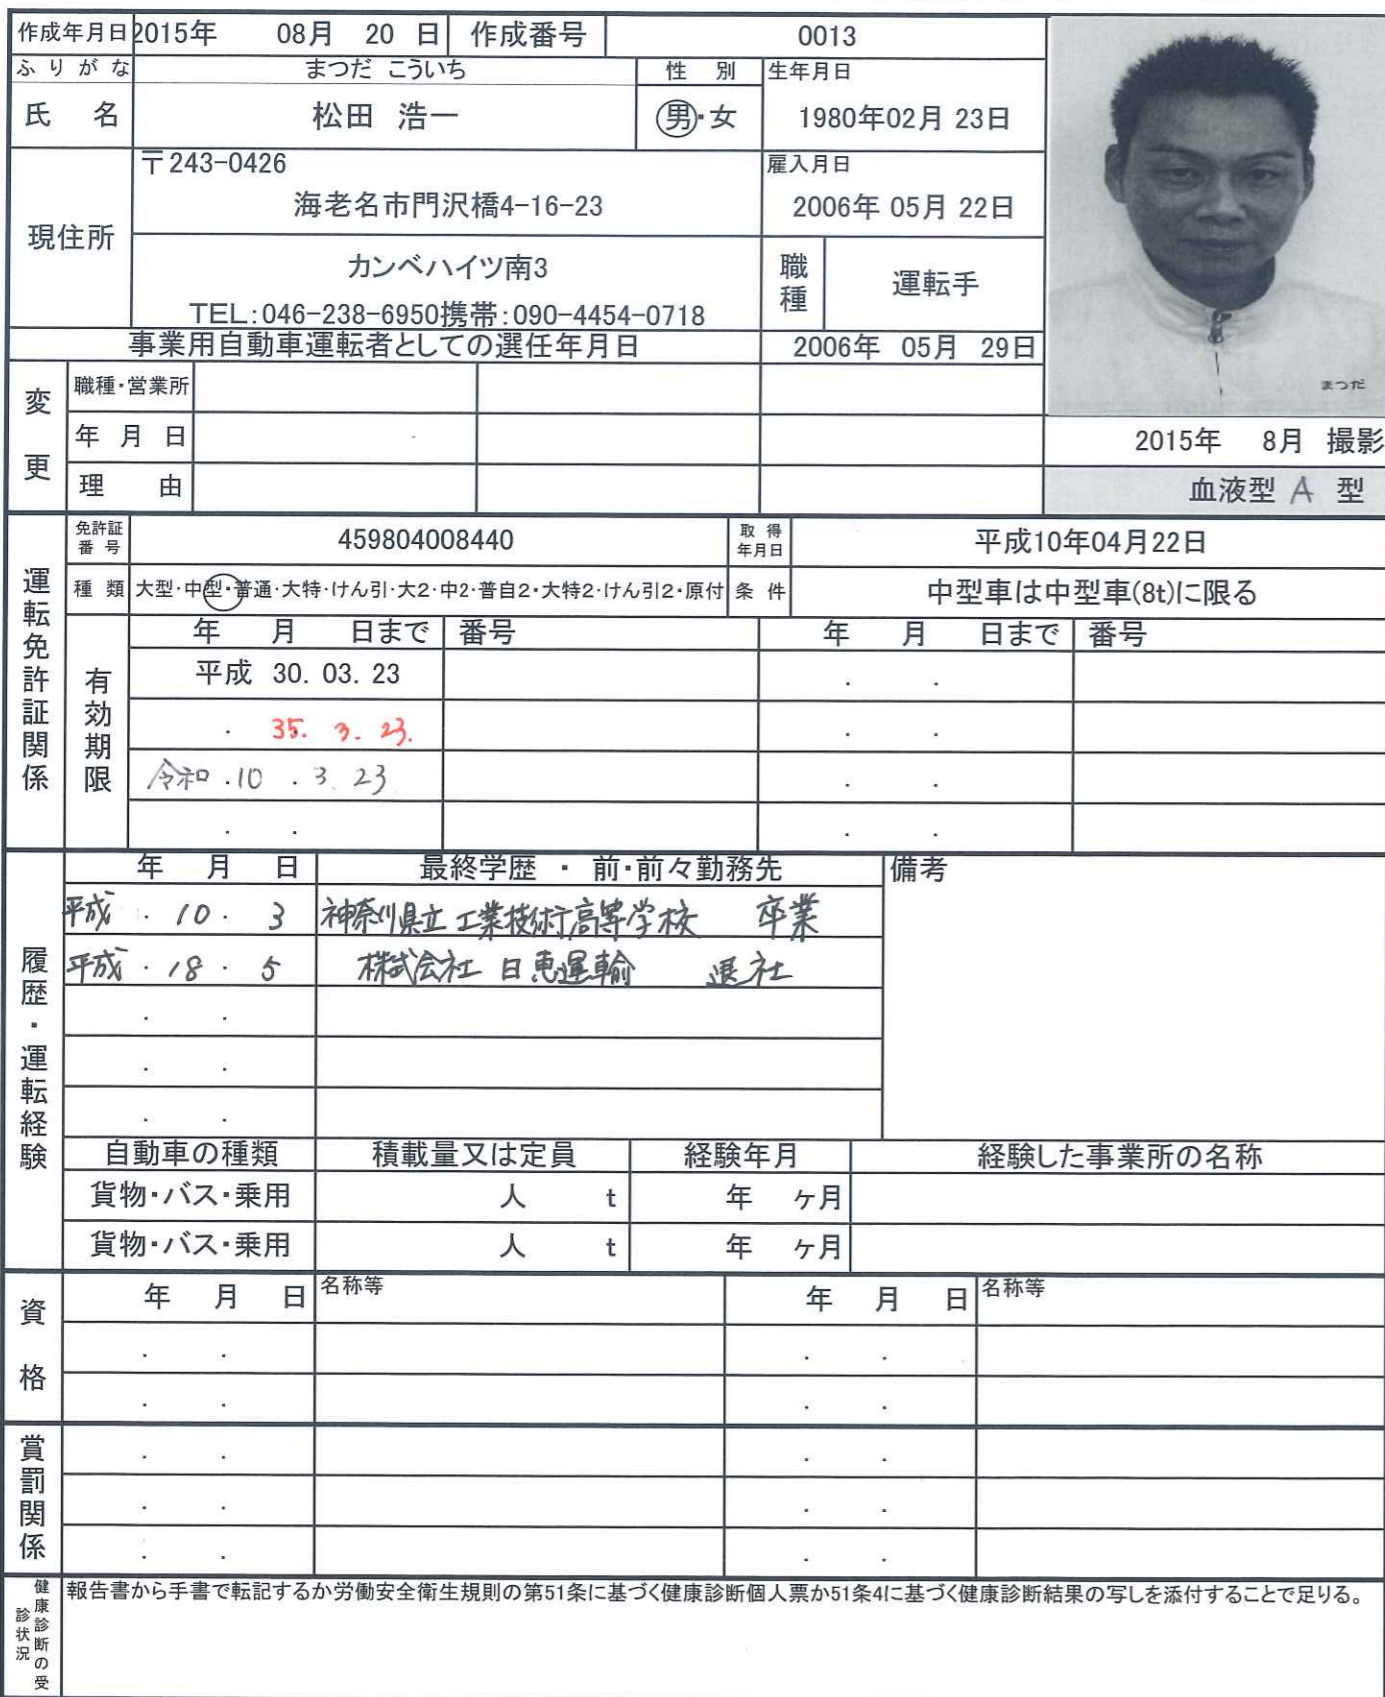 作成年月日 2015年 08月 20 日 作成番号 0013
ふりがな まつだ こういち 性 別 生年月日
氏 名 松田 浩一 男・女 1980年02月 23日
現住所 〒243-0426 雇入月日
海老名市門沢橋4-16-23 2006年 05月 22日
カンベハイツ南3 職種 運転手
TEL:046-238-6950携帯:090-4454-0718
事業用自動車運転者としての選任年月日 2006年 05月 29日
まつだ
変更 職種・営業所
年 月 日
2015年 8月 撮影
理 由
血液型 A 型
運転免許証関係 免許証番号 459804008440 取得年月日 平成10年04月22日
種 類 大型・中型・普通・大特・けん引・大2・中2・普自2・大特2・けん引2・原付 条 件 中型車は中型車(8t)に限る
有効期限 年 月 日まで 番号 年 月 日まで 番号
平成 30. 03. 23 . .
. 35. 3. 23. . .
令和 .10 . 3. 23 . .
. . . .
履歴・運転経験 年 月 日 最終学歴 ・ 前・前々勤務先 備考
平成 . 10 . 3 神奈川県立 工業技術高等学校 卒業
平成 . 18 . 5 株式会社 日恵運輸 退社
. .
. .
. .
自動車の種類 積載量又は定員 経験年月 経験した事業所の名称
貨物・バス・乗用 人 t 年 ヶ月
貨物・バス・乗用 人 t 年 ヶ月
資格 年 月 日 名称等 年 月 日 名称等
. . . .
. . . .
賞罰関係 . . . .
. . . .
. . . .
健康診断の受診状況 報告書から手書で転記するか労働安全衛生規則の第51条に基づく健康診断個人票か51条4に基づく健康診断結果の写しを添付することで足りる。